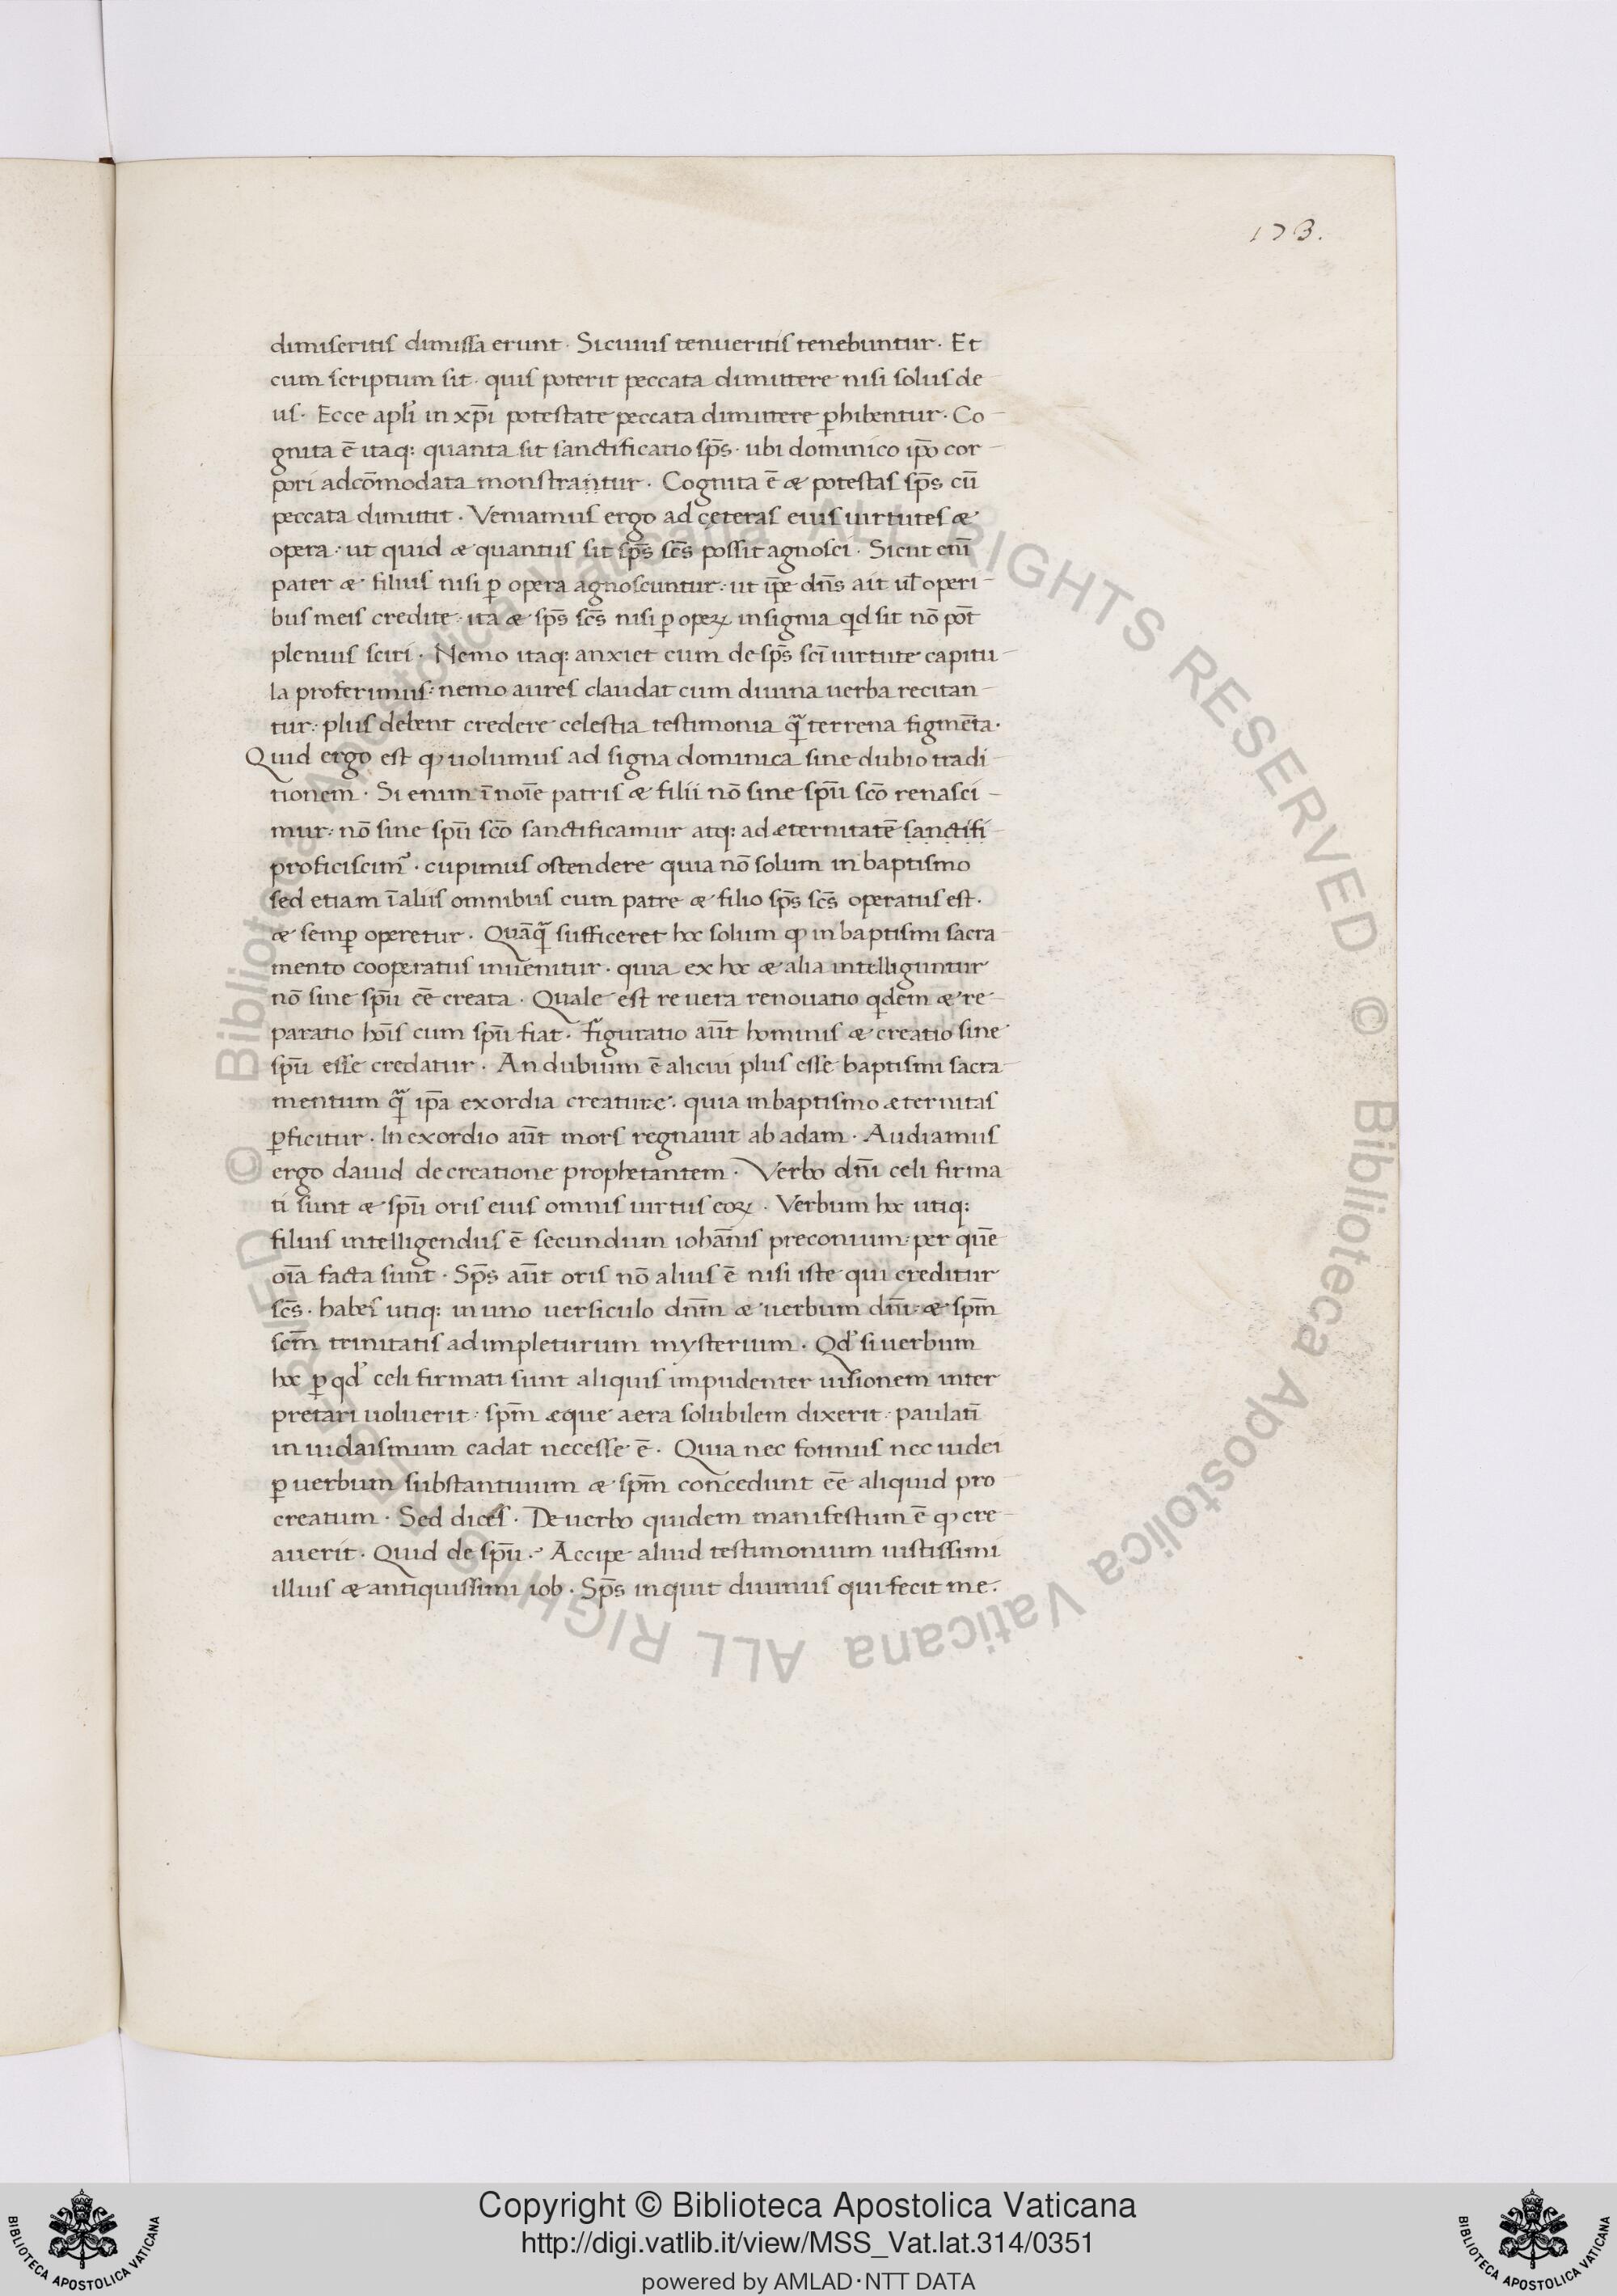 173.
dimiseritis dimissa erunt · Sicuius tenueritis tenebuntur · Et
cum scriptum sit · quis poterit peccata dimittere nisi solus de
us · Ecce apli in xp̄i potestate peccata dimittere p̱hibentur · Co
gnita ē itaq: quanta sit sanctificatio sp̄s · ubi dominico ip̄o cor
pori adcōmodata monstrantur · Cognita ē æ potestas sp̄s cū
peccata dimittit · Veniamus ergo ad ceteras eius uirtutes æ
opera : ut quid æ quantus sit sp̄s sc̄s possit agnosci · Sicut eni̅
pater æ filius nisi p̱ opera agnoscuntur : ut ip̄e dn̄s ait ul̄ operi
bus meis credite · ita æ sp̄s sc̄s nisi p̱ opeꝝ insignia qd sit nō pōt
plenius sciri · Nemo itaq: anxiet cum de sp̄s sc̄i uirtute capitu
la proferimus : nemo aures claudat cum diuina uerba recitan
tur : plus debent credere celestia testimonia qᷓ terrena figmēta ·
Quid ergo est ꝙ uolumus ad signa dominica sine dubio tradi
tionem · Si enim ī noīe patris æ filii nō sine spū scō renasci
mur : nō sine spū scō sanctificamur atq: ad æternitatē sanctifi
proficiscimꝰ · cupimus ostendere quia nō solum in baptismo
sed etiam ī aliis omnibus cum patre æ filio sp̄s sc̄s operatus est ·
æ semp̱ operetur · Quāqᷓ sufficeret hoc solum ꝙ in baptismi sacra
mento cooperatus inuenitur · quia ex hoc æ alia intelliguntur
nō sine spū eē creata · Quale est re uera renouatio qdem æ re
paratio hoīs cum spū fiat · Figuratio aūt hominis æ creatio sine
spū esse credatur · An dubium ē alicui plus esse baptismi sacra
mentum qᷓ ip̄a exordia creature : quia in baptismo æternitas
p̱ficitur · In exordio aūt mors regnauit ab adam · Audiamus
ergo dauid de creatione prophetantem · Verbo dn̄i celi firma
ti sunt æ spū oris eius omnis uirtus eoꝝ · Verbum hoc utiq:
filius intelligendus ē secundum iohānis preconium · per quē
oīa facta sunt · Sp̄s aūt oris nō alius ē nisi iste qui creditur
sc̄s · habes utiq: in uno uersiculo dn̄m æ uerbum dn̄i : æ sp̄m
sc̄m trinitatis adimpleturum mysterium · Qd' si uerbum
hoc p̱ qd' celi firmati sunt aliquis impudenter uisionem inter
pretari uoluerit · sp̄m æque aera solubilem dixerit · paulatī
in iudaismum cadat necesse ē · Quia nec fotinus nec iudei
p̱ uerbum substantiuum æ sp̄m concedunt eē aliquid pro
creatum · Sed dices · De uerbo quidem manifestum ē ꝙ cre
auerit · Quid de spū ? Accipe aliud testimonium iustissimi
illius æ antiquissimi iob · Sp̄s inquit diuinus qui fecit me ·
© Biblioteca Apostolica Vaticana ALL RIGHTS RESERVED © Biblioteca Apostolica Vaticana ALL RIGHTS RESERVED
Copyright © Biblioteca Apostolica Vaticana
http://digi.vatlib.it/view/MSS_Vat.lat.314/0351
powered by AMLAD·NTT DATA
BIBLIOTECA APOSTOLICA VATICANA
BIBLIOTECA APOSTOLICA VATICANA